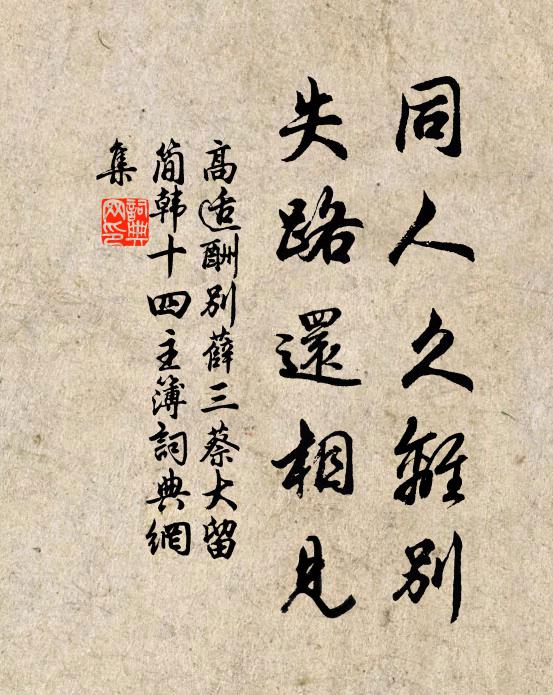 同人久離別
失路還相見
高适酬別薛三蔡大留
簡韩十四主簿詞典網
集
詞典網印